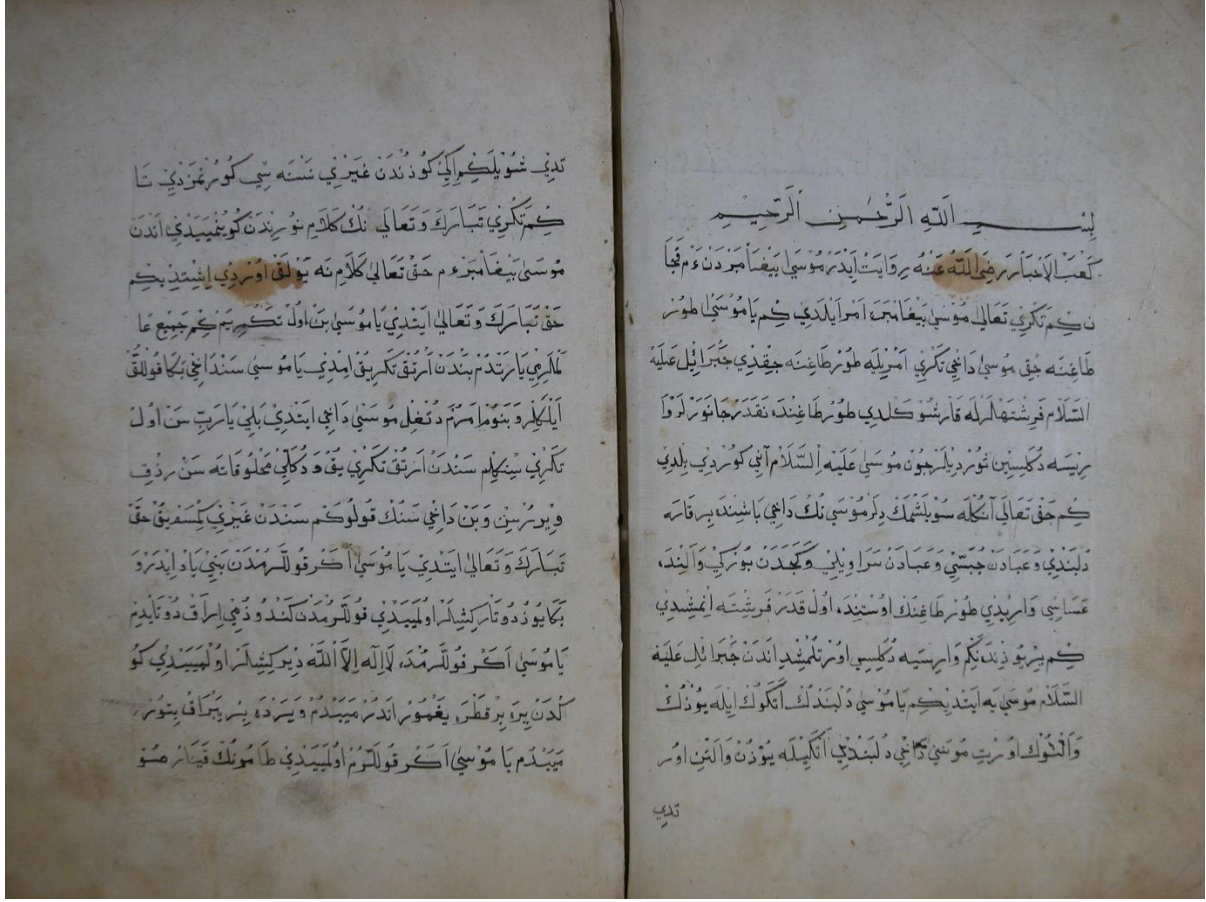 بِسْــــمِ اللّٰهِ الرَّحْمٰنِ الرَّحِيمِ
كَعْبُ الْاَحْبَارْ رَضِيَ اللّٰهُ عَنْهُ رِوَايَتْ اَيْدَرْ مُوسٰى پَيْغَامْبَرْدَنْ ءم قَچَا
نْ كِم تَكْرِي تَعَالٰى مُوسٰى پَيْغَامْبَرَه اَمْرْ اَيْلَدِي كِم يَا مُوسٰى طُورْ
طَاغِنَه چِقْ مُوسٰى دَاخِي تَكْرِي اَمْرِيلَه طُورْ طَاغِنَه چِقْدِي جَبْرَائِلْ عَلَيْهِ
السَّلَامْ فَرِشْتَهْلَرْلَه قَارْشُو كَلْدِي طُورْ طَاغِنْدَه نَقَدَرْ جَانَوَرْ لَرْ وَا
رِيسَه دُكَلِيسِينْ سُورْدِيلَرْ چُونْ مُوسٰى عَلَيْهِ السَّلَامْ آنِي كُورْدِي بِلْدِي
كِم حَقْ تَعَالٰى آنُكْلَه سُويْلَشْمَكْ دِلَرْ مُوسٰى نُكْ دَاخِي بَاشِنْدَه بِرْ قَارَه
دُلْبَنْدِي وَ عَبَادَنْ جُبَّسِي وَ عَبَادَنْ سَرَاوِيلِي وَ كَچَدَنْ بُورْكِي وَ اَلِنْدَه
عَصَاسِي وَارِيدِي طُورْ طَاغِنُكْ اُوسْتِنْدَه اُولْ قَدَرْ فَرِشْتَه اِنْمِشِدِي
كِم يِرْ يُوذِنْدَه نَكِمْ وَارِسَيِه دُكَلِيسِي اُورْتُلْمُشِدِ اَنْدَنْ جَبْرَائِلْ عَلَيْهِ
السَّلَامْ مُوسٰى يَه اَيْتْدِيكِم يَا مُوسٰى دُلْبَنْدُكْ اَتَكُوكْ اِيلَه يُوذُكْ
وَ اَلْنُوكْ اُورْتْ مُوسٰى دَاخِي دُلْبَنْدِي اَتَكِيلَه يُوزُنْ وَ اَلْنِنْ اُورْ
تدي
تدِي شُويْلَكِم اِكِي كُوذُنْدَنْ غَيْرِي نَسْنَه سِي كُورُنْمَزْدِي تَا
كِم تَكْرِي تَبَارَكَ وَ تَعَالٰى نُكْ كَلَامِ نُورِنْدَنْ كُويُنْمَيَيْدِي اَنْدَنْ
مُوسٰى پَيْغَامْبَرْ ءم حَقْ تَعَالٰى كَلَامِ نَه يُولُقْ اُورْدِي اِشِتْدِيكِم
حَقْ تَبَارَكَ وَ تَعَالٰى اَيْتْدِي يَا مُوسٰى بَنْ اُولْ تَكْرِيِيَم كِم جَمِيعِ عَا
لَمْلَرِي يَارَتْدُمْ بَنْدَنْ اَرْتُقْ تَكْرِي يُقْ اِمْدِي يَا مُوسٰى سَنْ دَاخِي بَكَا قُولْلُقْ
اَيْلَكِلْ وَ بَنُومْ اَمْرُمْ دُتْغِلْ مُوسٰى دَاخِي اَيْتْدِي بَلِي يَا رَبِّ سَنْ اُولْ
تَكْرِي سِينْكِم سَنْدَنْ اَرْتُقْ تَكْرِي يُقْ وَ دُكَلِي مَخْلُوقَاتَه سَنْ رِزْقْ
وِيرُرْسِنْ وَ بَنْ دَاخِي سَنُكْ قُولُوكَمْ سَنْدَنْ غَيْرِي كِمْسَه يُقْ حَقْ
تَبَارَكَ وَ تَعَالٰى اَيْتْدِي يَا مُوسٰى اَكَرْ قُولْلَرُمْدَنْ بَنِي يَادْ اِيدَرْ وَ
بَكَا يُوذْ دُوتَارْ كِشِلَرْ اُولْمَيَيْدِي قُولْلَرُمْدَنْ كَنْدُوذُمِي اِرَاقْ دُوتَايْدِمْ
يَا مُوسٰى اَكَرْ قُولْلَرُمْدَه لَا اِلٰهَ اِلَّا اللّٰهْ دِيرْ كِشِلَرْ اُولْمَيَيْدِي كُو
كْدَنْ يِرَه بِرْ قَطْرَه يَغْمُورْ اِنْدُرْمَيَيْدُمْ وَ يِرْدَه بِرْ يَبْرَاقْ بِتُورْ
مَيَيْدُمْ يَا مُوسٰى اَكَرْ قُولْلَرُمْ اُولْمَيَيْدِي طَامُونُكْ قَيْنَارْ صُوْ